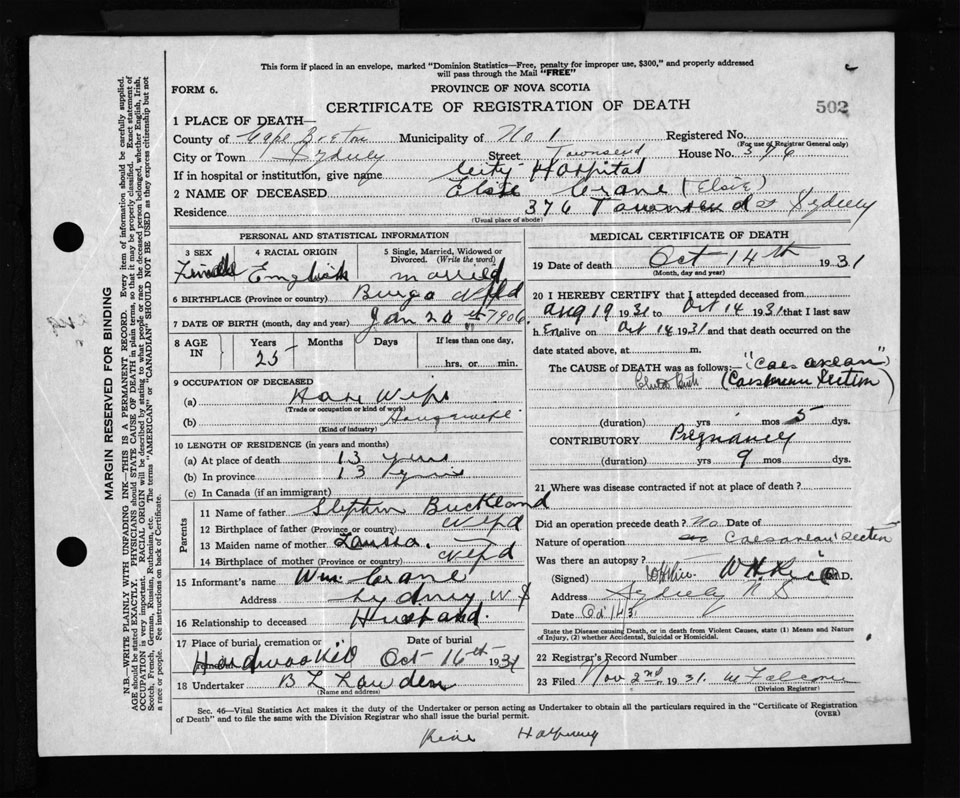 This form if placed in an envelope, marked "Dominion Statistics—Free, penalty for improper use, $300," and properly addressed
will pass through the Mail "FREE"
FORM 6.
PROVINCE OF NOVA SCOTIA
502
CERTIFICATE OF REGISTRATION OF DEATH
1 PLACE OF DEATH—
County of Cape Breton Municipality of No 1 Registered No.
(For use of Registrar General only)
City or Town Sydney Street Townsend House No. 376
If in hospital or institution, give name City Hospital
2 NAME OF DECEASED Elsie Crane (Elsie)
Residence 376 Townsend St Sydney
(Usual place of abode)
PERSONAL AND STATISTICAL INFORMATION
3 SEX 4 RACIAL ORIGIN 5 Single, Married, Widowed or
Divorced. (Write the word)
Female English married
6 BIRTHPLACE (Province or country) Burgo Nfld
7 DATE OF BIRTH (month, day and year) Jan 20th 1906
8 AGE IN Years Months Days If less than one day,
25 hrs. or min.
9 OCCUPATION OF DECEASED
(a) House Wife
(Trade or occupation or kind of work)
(b) Housewife
(Kind of industry)
10 LENGTH OF RESIDENCE (in years and months)
(a) At place of death 13 years
(b) In province 13 years
(c) In Canada (if an immigrant)
Parents
11 Name of father Stephen Buckland
12 Birthplace of father (Province or country) Nfld
13 Maiden name of mother
14 Birthplace of mother (Province or country) Nfld
15 Informant's name Wm. Crane
Address Sydney N S
16 Relationship to deceased Husband
17 Place of burial, cremation or Date of burial
Hardwood Hill Oct 16th 1931
18 Undertaker B L
(Name and address)
MEDICAL CERTIFICATE OF DEATH
19 Date of death Oct 14th 1931
(Month, day and year)
20 I HEREBY CERTIFY that I attended deceased from
Aug 19 1931 to Oct 14 1931 that I last saw
h er alive on Oct 14 1931 and that death occurred on
date stated above, at m.
"Caesarean"
The CAUSE of DEATH was as follows:—
(Caesarean Section)
(duration) yrs mos 5 dys.
CONTRIBUTORY Pregnancy
(duration) yrs 9 mos dys.
21 Where was disease contracted if not at place of death?
Did an operation precede death? No Date of
Nature of operation Caesarean Section
Was there an autopsy?
(Signed) M.D.
Address Sydney N S
Date Oct 14 31
State the Disease causing Death, or in death from Violent Causes, state (1) Means and Nature
of Injury, (2) whether Accidental, Suicidal or Homicidal.
22 Registrar's Record Number
23 Filed Nov 2nd 1931.
(Division Registrar)
Sec. 46—Vital Statistics Act makes it the duty of the Undertaker or person acting as Undertaker to obtain all the particulars required in the "Certificate of Registration
of Death" and to file the same with the Division Registrar who shall issue the burial permit.
(OVER)
MARGIN RESERVED FOR BINDING
N.B.—WRITE PLAINLY WITH UNFADING INK—THIS IS A PERMANENT RECORD. Every item of information should be carefully supplied.
AGE should be stated EXACTLY. PHYSICIANS should STATE CAUSE OF DEATH in plain terms, so that it may be properly classified. Exact statement of
OCCUPATION is very important. RACIAL ORIGIN will be described by stating to what people or race the deceased person belonged, whether English, Irish,
Scotch, French, German, Russian, Ruthenian, etc. The terms "AMERICAN" or "CANADIAN" SHOULD NOT BE USED as they express citizenship but not
a race or people. See instructions on back of Certificate.